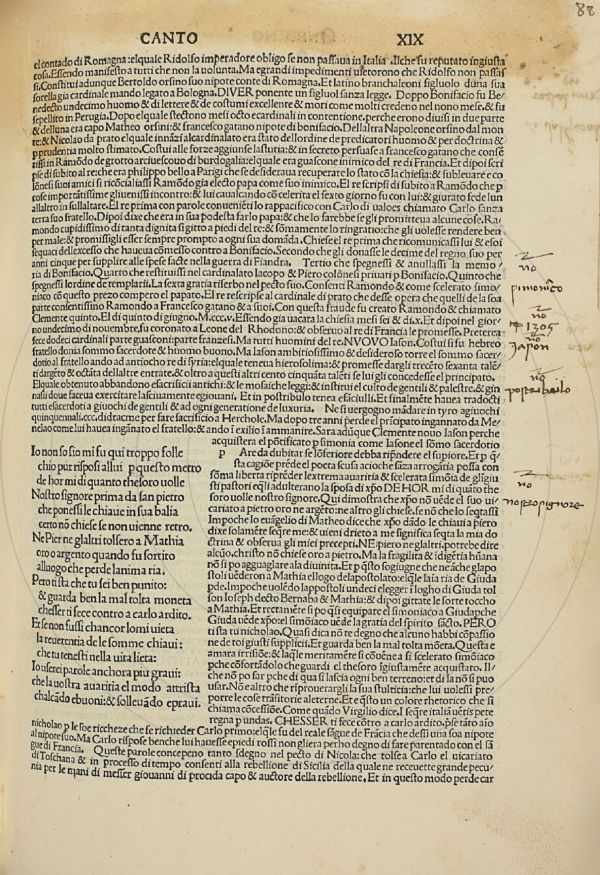 88
CANTO XIX
el contado di Romagna: elquale Ridolfo imperadore obligo se non passaua in Italia. Ilche fu reputato ingiusta
cosa. Essendo manifesto a tutti che non la uolunta. Ma egrandi impedimenti uietorono che Ridolfo non passas
si. Constitui adunque Bertoldo orsino suo nipote conte di Romagna. Et latino brancaleoni figluolo duna sua
sorella gia cardinale mando legato a Bologna. DIVER ponente um figluol sanza legge. Doppo Bonifacio fu Be
nedecto undecimo huomo & di lettere & de costumi excellente & mori come molti credenel nono mese. & fu
sepellito in Perugia. Dopo elquale stectono mesi octo ecardinali in contentione. perche erono diuisi in due parte
& delluna era capo Matheo orsini: & francesco gatano nipote di bonifacio. Dellaltra Napoleone orsino dal mon
te: & Nicolao da prato elquale innãzi al cardinalato era stato dellordine de predicatori huomo & per doctrina &
p prudentia molto stimato. Costui alle forze aggiunse lastutia: & in secreto persuase a francesco gatano che consē
tissi in Ramõdo de grotto arciuescouo di burdogalia: elquale era guascone inimico del re di Francia. Et dipoi scri
pse di subito al re: che era philippo bello a Parigi che se desideraua recuperare lo stato cõ la chiesa: & subleuare e co
lõnesi suoi amici si ricõciliassi Ramõdo gia electo papa come suo inimico. El re scripsi di subito a Ramõdo che p
cose importãtissime gliuenissi incontro: & lui caualcando cõ celerita el sexto giorno fu con lui: & giurata fede lun
allaltro in sullaltare. El re prima con parole conueniēti lo rappacifico con Carlo di ualoes chiamato Carlo sanza
terra suo fratello. Dipoi dixe che era in sua põdesta farlo papa: & che lo farebbe se gli promitteua alcune cose. Ra-
mondo cupidissimo di tanta dignita si gitto a piedi del re: & sõmamente lo ringratio: che gli uolesse rendere ben
per male: & promissigli esser sempre prompto a ogni sua domãda. Chiese el re prima che ricomunicassi lui & esoi
sequaci dellexcesso che haueua cõmesso contro a Bonifacio. Secondo che gli donasse le decime del regno, suo per
anni cinque per supplire alle spese facte nella guerra di Fiandra. Tertio che spegnessi & anullassi la memo
ria di Bonifacio. Quarto che restituissi nel cardinalato Iacopo & Piero colõnesi priuati p Bonifacio. Quinto che
spegnessi lordine de templarii. La sexta gratia riserbo nel pecto suo. Consenti Ramondo & come scelerato simo-
niaco cõ questo prezo compero el papato. El re rescripse al cardinale di prato che desse opera che quelli de la soa
parte consentissino Ramondo a Francesco gatano & a suoi. Con questa fraude fu creato Ramondo & chiamato
Clemente quinto. El di quinto di giugno. M.ccc.v. Essendo gia uacata la chiesa mesi sei & di .x. Et dipoi nel gior-
no undecimo di nouembre, fu coronato a Leone del Rhodono: & obseruo al re di Francia le promesse. Preterea
fece dodeci cardinali parte guasconi: parte franzesi. Ma tutti huomini del re. NVOVO Iason. Costui si fu hebreo
fratello donia sommo sacerdote & homo buono. Ma Iason ambitiosissimo & desideroso torre el sommo sacer-
dotio al fratello ando ad antiocho re di Syria: elquale teneua hierosolima: & promesse dargli trecēto sexanta talē
ti dargēto & octãta dellaltre entrate. & oltro a questi altri cento cinquanta talēti se lui gli concedesse el principato.
Elquale obtenuto abbandono esacrificii antichi: & le mosaiche leggi: & institui el culto de gentili & palestre. & gin
nasii doue faceua exercitare lasciuamente egiouani. Et in postribulo tenea efaciulli. Et finalmēte hauea tradocti
tutti esacerdoti a giuochi de gentili & ad ogni generatione de luxuria. Ne si uergogno mãdare in tyro agiuochi
quinquennali. ccc. didracme per fare sacrificio a Herchole. Ma dopo tre anni perde el pricipato ingannato da Me-
nelao come lui hauea ingãnato el fratello: & ando ĩ exilio ĩ ammanite. Sara adũque Clemente nouo Iason perche
acquistera el põtificato p simonia come Iasone el sõmo sacerdotio
Io non so sio mi fu qui troppo folle
chio pur risposi allui p questo metro
de hor mi di quanto thesoro uolle
Nostro signore prima da san pietro
che ponessi le chiaue in sua balia
certo nō chiese se non uienne retro.
Ne Pier ne glaltri tolsero a Mathia
oro o argento quando fu sortito
alluogo che perde lanima ria.
Pero tista che tu sei ben punito:
& guarda ben la mal tolta moneta
chesser ti fece contro a carlo ardito.
Et se non fussi chancor lomi uieta
la reuerentia de le somme chiaui:
che tu tenesti nella uita lieta:
Io userei parole anchora piu graui:
che la uostra auaritia el modo attrista
chalcãdo ebuoni: & solleuãdo epraui.
p Are da dubitar se lo inferiore debba ripndere el supiore. Et p q̃
sta cagiõe prēde el poeta scusa acioche saza arrogãtia possa con
sõma liberta ripréder lextrema auaritia & scelerata simõia de gligiu
sti pastori eq̃li adulterano la sposa di xp̄o. DE HOR mi di quato the
soro uolle nostro signore. Qui dimostra che xp̄o nõ uēde el suo ui-
cariato a pietro oro ne argēto: ne altro gli chiese. se nõ che lo seq̃tassi
Impoche lo euãgelio di Matheo dice che xp̄o dãdo le chiaui a piero
dixe solamēte seq̃re me: & uieni drieto a me significa seq̃ta la mia do
ctrina & obserua gli miei precepti. NE piero ne glaltri. potrebe dire
alcūo. christo nõ chiese oro a pietro. Ma la fragilita & idigētia hũana
nõ si po agguaglare ala diuinita. Et p q̃sto sogiugne che neãche glapo
stoli uēderon a Mathia ellogo de lapostolato: elq̃le lasa ria de Giuda
pde. Impoche uolēdo lappostoli undeci elegger ĩ logho di Giuda tol
son Ioseph decto Bernaba & Mathia: & dipoi gittate le sorte toccho
a Mathia. Et rectamēte si po q̃sti equipare el simoniaco a Giuda pche
Giuda uēde xp̄o: el simõiaco uēde la grã del spirito sãcto. PERO
ti sta tu nicholao. Quasi dica nõ te degno che alcuno habbi cõpassio
ne de toi giusti supplicii. Et guarda ben la mal tolta moēta. Questa e
amara irrisiõe: & laq̃le meritamēte si cõuēne a si scelerato simõiaco
pche cõfortãdolo che guardi el thesoro igiustamēte acquistato. Il-
che nõ po sar pche di qua si lascia ogni ben terreno: et di la nõ si puo
usar. Nõ e altro che riprouerargli la sua stulticia: che lui uolessi pre-
porre le cose trãsitorie alēterne. Et q̃sto un colore rhetorico che si
chiama cõcessiõe. Come quãdo Virgilio dice. I seq̃re italiã uētis pete
regna p undas. CHESSER ti fece cõtro a carlo ardito. pse rato aio
nicholao p le soe riccheze che se richieder Carlo primo: elq̃le fu del reale sãgue de Frãcia che dessi una soa nipote
al nipote suo. Ma Carlo rispose benche lui hauesse epiedi rossi non gliera perho degno di fare parentado con el sã
gue di Francia. Queste parole concepeno tanto sdegno nel pecto di Nicola: che tolse a Carlo el uicariato
di Toschana & in processo di tempo consenti alla rebellione di Sicilia della quale ne receuette grande pecu-
nia per le mani di messer giouanni di procida capo & auctore della rebellione. Et in questo modo perde car
no
no
1305
no
Iapon
no
no
nostro signore